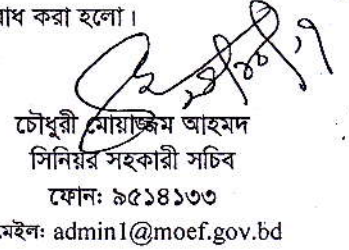 রোধ করা হলো।
চৌধুরী মোয়াজ্জম আহমদ
সিনিয়র সহকারী সচিব
ফোন: ৯৫১৪১৩৩
মেইল: admin1@moef.gov.bd